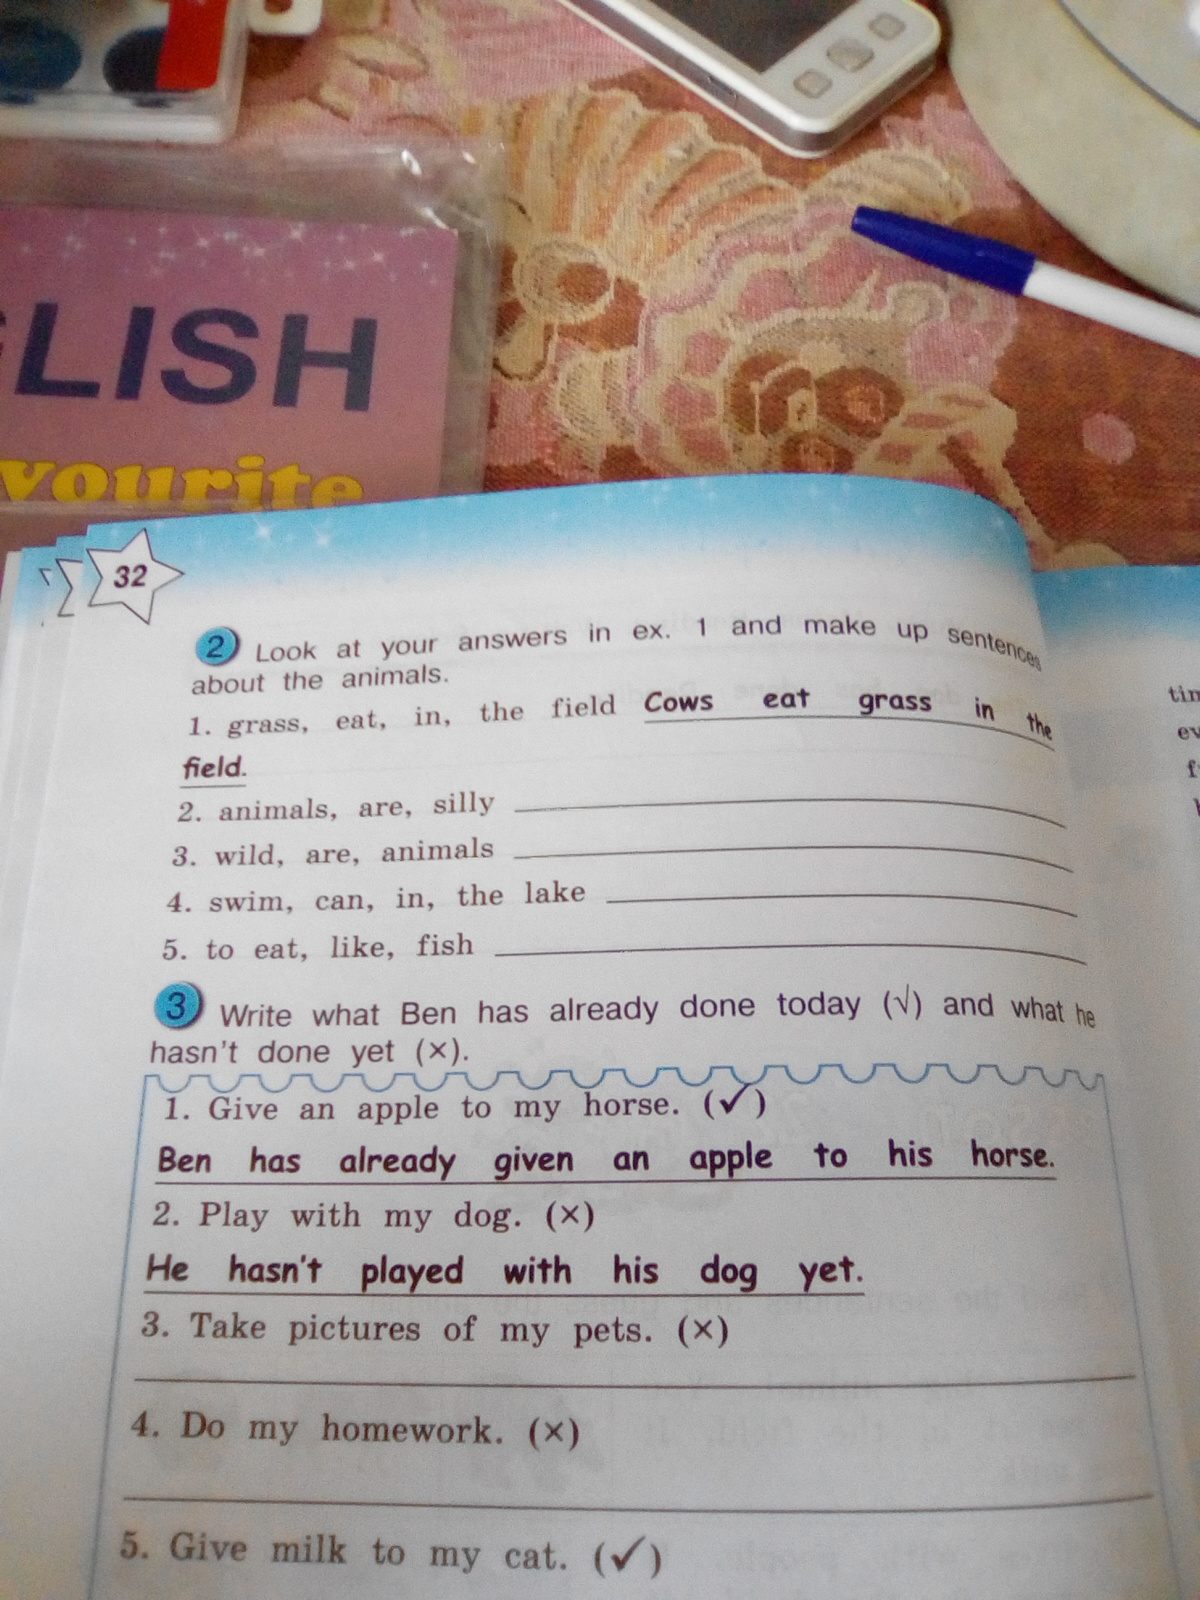 LISH
vourite
32
2 Look at your answers in ex. 1 and make up sentences
about the animals.
1. grass, eat, in, the field Cows eat grass in the
field.
2. animals, are, silly
3. wild, are, animals
4. swim, can, in, the lake
5. to eat, like, fish
3 Write what Ben has already done today (√) and what he
hasn't done yet (×).
1. Give an apple to my horse. (✓)
Ben has already given an apple to his horse.
2. Play with my dog. (×)
He hasn't played with his dog yet.
3. Take pictures of my pets. (×)
4. Do my homework. (×)
5. Give milk to my cat. (✓)